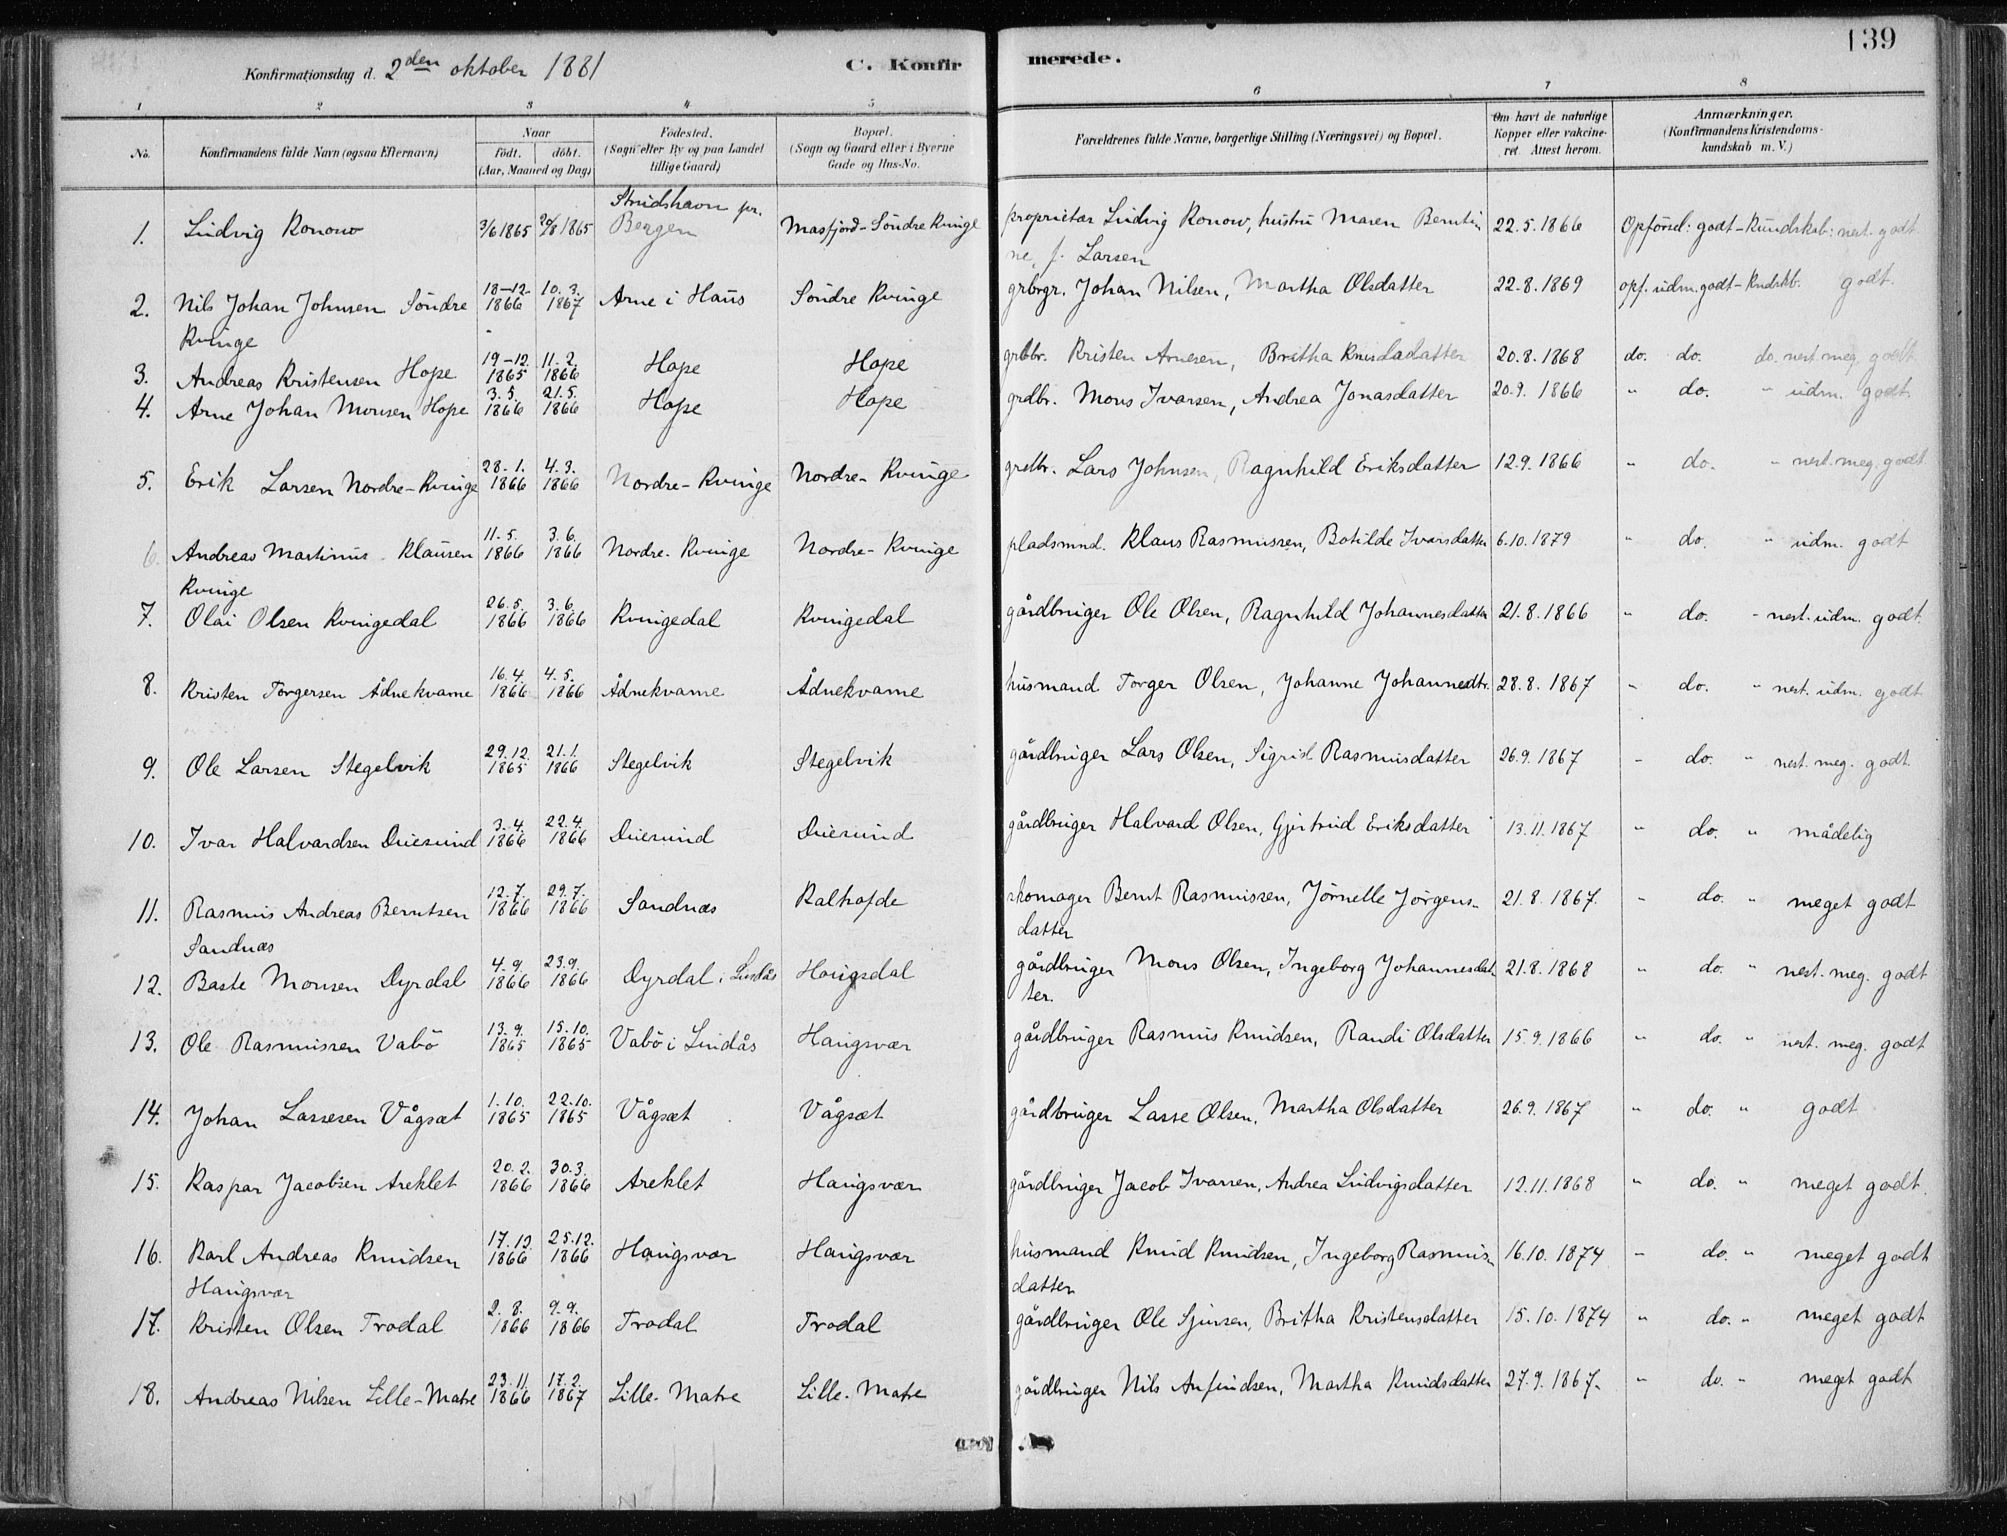 139
Konfirmationsdag d. 2den oktober 1881 C. Konfirmerede.
1 2 3 4 5 6 7 8
No. Konfirmandens fulde Navn (ogsaa Efternavn) Naar født. døbt. (Aar, Maaned og Dag) Fødested. (Sogn eller By og paa Landet tillige Gaard) Bopæl. (Sogn og Gaard eller i Byerne Gade og Hus-No. Forældrenes fulde Navne, borgerlige Stilling (Næringsvei) og Bopæl. Om havt de naturlige Kopper eller vakcineret. Attest herom. Anmærkninger. (Konfirmandens Kristendomskundskab m. V.)
1. Ludvig Konow 3/6 1865 20/8 1865 Strudshavn pr. Bergen Masfjord-Söndre Kvinge proprietær Ludvig Konow, hustru Maren Berntine, f. Larsen 22.5.1866 Opførsel: godt-Kundskab: nest. godt
2. Nils Johan Johnsen Söndre Kvinge 18-12. 1866 10.3. 1867 Arne i Haus Söndre Kvinge grbrgr. Johan Nilsen, Martha Olsdatter 22.8.1869 opf. udm. godt-Kndskb. godt.
3. Andreas Kristensen Hope 19-12. 1865 11.2. 1866 Hope Hope grbbr. Kristen Arnesen, Britha Knudsdatter 20.8.1868 do. do. do. nest meg. godt.
4. Arne Johan Monsen Hope 3.5. 1866 21.5. 1866 Hope Hope grdbr. Mons Ivarsen, Andrea Jonasdatter 20.9. 1866 " do. " udm. godt.
5. Erik Larsen Nordre-Kvinge 28.1. 1866 4.3. 1866 Nordre-Kvinge Nordre-Kvinge grdbr. Lars Johnsen, Ragnhild Eriksdatter 12.9.1866 " do. " nest. meg. godt
6. Andreas Martinus Klausen Kvinge 11.5. 1866 3.6. 1866 Nordre-Kvinge Nordre-Kvinge pladsmnd. Klaus Rasmussen, Botilde Ivarsdatter 6.10.1879 " do. " udm. godt
7. Olai Olsen Kvingedal 26.5. 1866 3.6. 1866 Kvingedal Kvingedal gårdbruger Ole Olsen, Ragnhild Johannesdatter 21.8.1866 " do. " nest. udm. godt.
8. Kristen Torgersen Ådnekvame 16.4. 1866 4.5. 1866 Ådnekvame Ådnekvame husmand Torger Olsen, Johanne Johannesdtr. 28.8.1867 " do. " nest. udm. godt
9. Ole Larsen Stegelvik 29.12. 1865 21.1. 1866 Stegelvik Stegelvik gårdbruger Lars Olsen, Sigrid Rasmusdatter 26.9.1867 " do. " nest. meg. godt.
10. Ivar Halvardsen Duesund 3.4. 1866 22.4. 1866 Duesund Duesund gårdbruger Halvard Olsen, Gjertrud Eriksdatter 13.11.1867 " do. " mådelig
11. Rasmus Andreas Berntsen Sandnæs 12.7. 1866 29.7. 1866 Sandnæs Kalhofde skomager Bernt Rasmussen, Jørnelle Jørgensdatter 21.8.1867. " do. " meget godt
12. Baste Monsen Dyrdal 4.9. 1866 23.9. 1866 Dyrdal i Lindås Haugsdal gårdbruger Mons Olsen, Ingeborg Johannesdatter. 21.8.1868 " do. " nest. meg. godt
13. Ole Rasmussen Vabö 13.9. 1865 15.10. 1865 Vabö i Lindås Haugsvær gårdbruger Rasmus Knudsen, Randi Olsdatter 15.9.1866 " do. " nest. meg. godt
14. Johan Lassesen Vågsæt 1.10. 1865 22.10. 1865 Vågsæt Vågsæt gårdbruger Lasse Olsen, Martha Olsdatter 26.9.1867 " do. " godt
15. Kaspar Jacobsen Areklet 20.2. 1866 30.3. 1866 Areklet Haugsvær gårdbruger Jacob Ivarsen, Andrea Ludvigsdatter 12.11.1868 " do. " meget godt.
16. Karl Andreas Knudsen Haugsvær 17.12. 1866 25.12. 1866 Haugsvær Haugsvær husmand Knud Knudsen, Ingeborg Rasmusdatter 16.10.1874 " do. " meget godt
17. Kristen Olsen Trodal 2.8. 1866 9.9. 1866 Trodal Trodal gårdbruger Ole Sjursen, Britha Kristensdatter 15.10.1874 " do. " meget godt
18. Andreas Nilsen Lille-Matre 23.11. 1866 17.2. 1867 Lille-Matre Lille-Matre gårdbruger Nils Anfindsen, Martha Knudsdatter 27.9.1867. " do. " meget godt